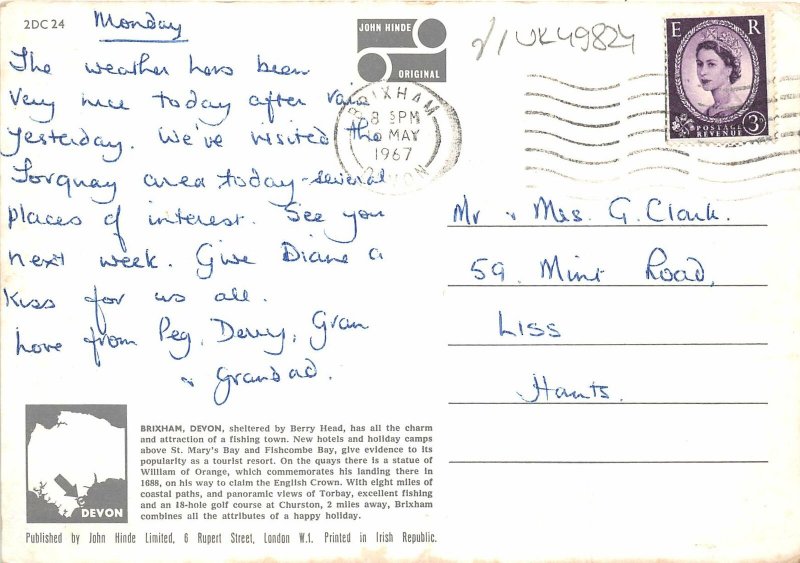 2DC24
Monday
The weather has been
very nice today after rain
yesterday. We've visited the
Torquay area today - several
places of interest. See you
next week. Give Diane a
kiss for us all.
Love from Peg, Derry, Gran
& Grandad.
JOHN HINDE
ORIGINAL
UK49824
BRIXHAM
8 PM
MAY
1967
DEVON
E R
POSTAGE
REVENUE
3D
Mr & Mrs. G. Clark.
59. Mint Road,
Liss
Hants.
DEVON
BRIXHAM, DEVON, sheltered by Berry Head, has all the charm
and attraction of a fishing town. New hotels and holiday camps
above St. Mary's Bay and Fishcombe Bay, give evidence to its
popularity as a tourist resort. On the quays there is a statue of
William of Orange, which commemorates his landing there in
1688, on his way to claim the English Crown. With eight miles of
coastal paths, and panoramic views of Torbay, excellent fishing
and an 18-hole golf course at Churston, 2 miles away, Brixham
combines all the attributes of a happy holiday.
Published by John Hinde Limited, 6 Rupert Street, London W.1. Printed in Irish Republic.